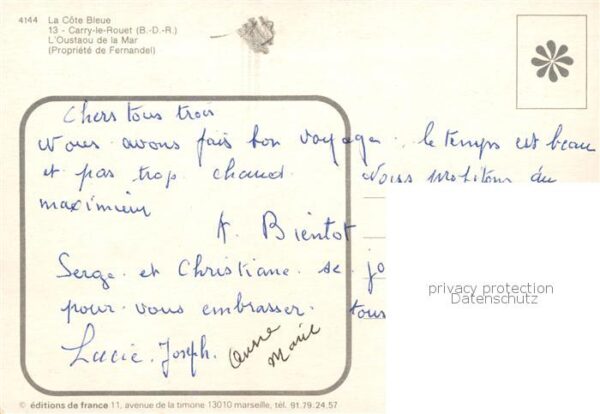 4144 La Côte Bleue
13 - Carry-le-Rouet (B.-D.-R.)
L'Oustaou de la Mar
(Propriété de Fernandel)
Chers tous trois
Nous avons fais bon voyage. le temps est beau
et pas trop chaud. Nous profitons du
maximum
A Bientot
Serge et Christiane se jo
pour vous embrasser. tous
Lucie. Joseph. Anne
Marie
privacy protection
Datenschutz
© éditions de france 11, avenue de la timone 13010 marseille, tél. 91.79.24.57